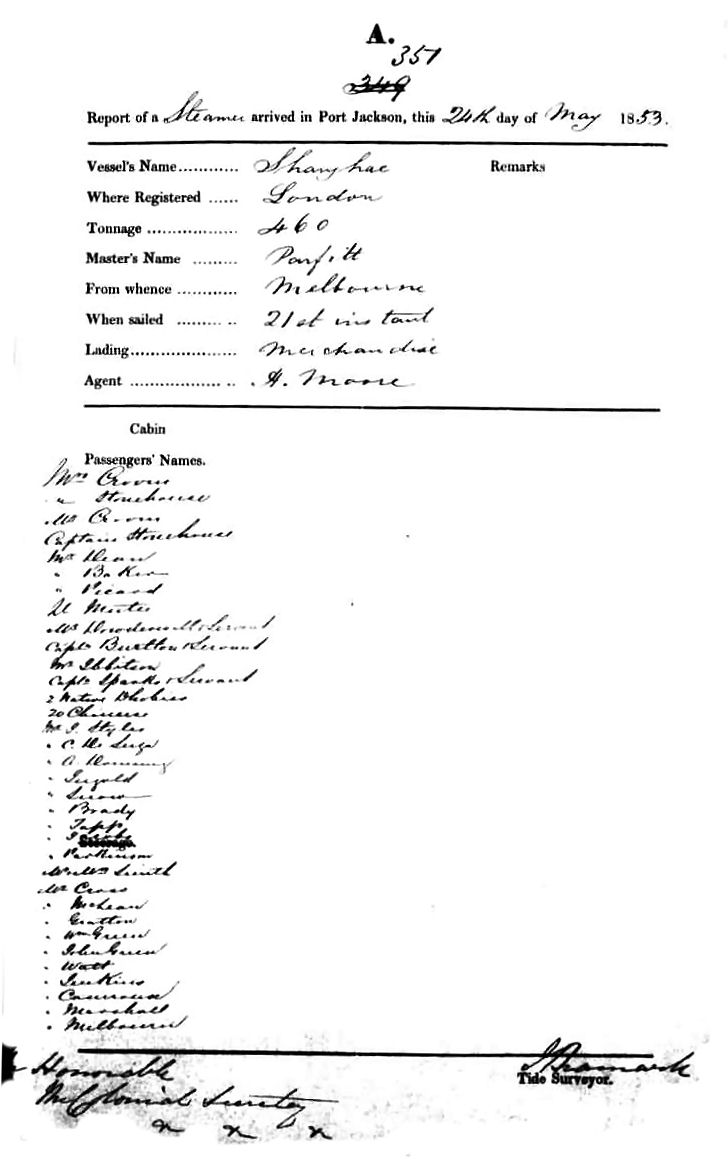 A.
351
349
Report of a Steamer arrived in Port Jackson, this 24th day of May 1853.
Vessel's Name............ Shanghae Remarks
Where Registered ...... London
Tonnage .................. 460
Master's Name ......... Parfitt
From whence ............ Melbourne
When sailed ......... .. 21st instant
Lading..................... Merchandise
Agent .................. .. H. Moore
Cabin
Passengers' Names.
Mrs Croom
" Stonehouse
Mr Croom
Captain Stonehouse
Mr Dean
" Baker
" Picard
Mr & Servant
Captn Burtton & Servant
Mr Ibbitson
Captn Sparks & Servant
2 Native Dhobies
20 Chinese
Mr J. Styles
" C. De
" A.
" Ingold
" Snow
" Brady
" Tapp
"
Steerage.
" Parkinson
Mr & Mrs Smith
Mr Cross
" McLean
" Gratton
" Wm Green
" John Green
" Watt
" Jenkins
"
" Marshall
" Melbourne
Honorible
The Colonial Secretary
Tide Surveyor.